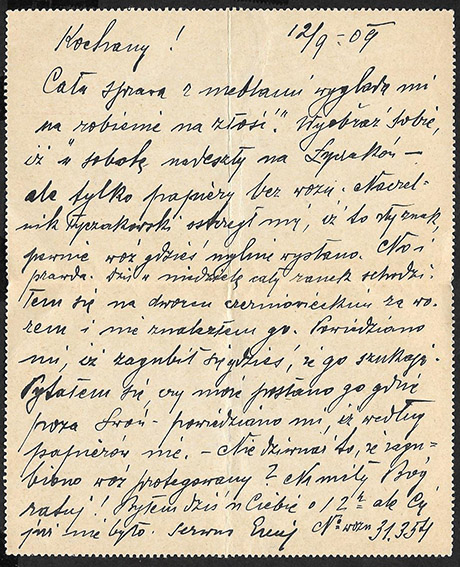 Kochany! 12/9-09
Cała sprawa z meblami wygląda mi
na robienie na złość". Wyobraź sobie,
iż w sobotę nadeszły na Łyczaków —
ale tylko papiery bez wozu. Naczel-
nik łyczakowski ostrzegł mię, iż to zły znak,
pewnie wóz gdzieś mylnie wysłano. No i
prawda. Dziś w niedzielę cały ranek schodzi-
łem się na dworcu czerniowieckim za wo-
zem i nie znalazłem go. Powiedziano
mi, iż zagubił się gdzieś, że go szukają.
Pytałem się, czy może posłano go gdzie
poza Lwów - powiedziano mi, iż według
papierów nie. - Nie dziwne to, że zagu-
biono wóz protegowany? Na miły Bóg
ratuj! Byłem dziś u Ciebie o 12ej ale Cię
już nie było. Serwus No wozu 31.354